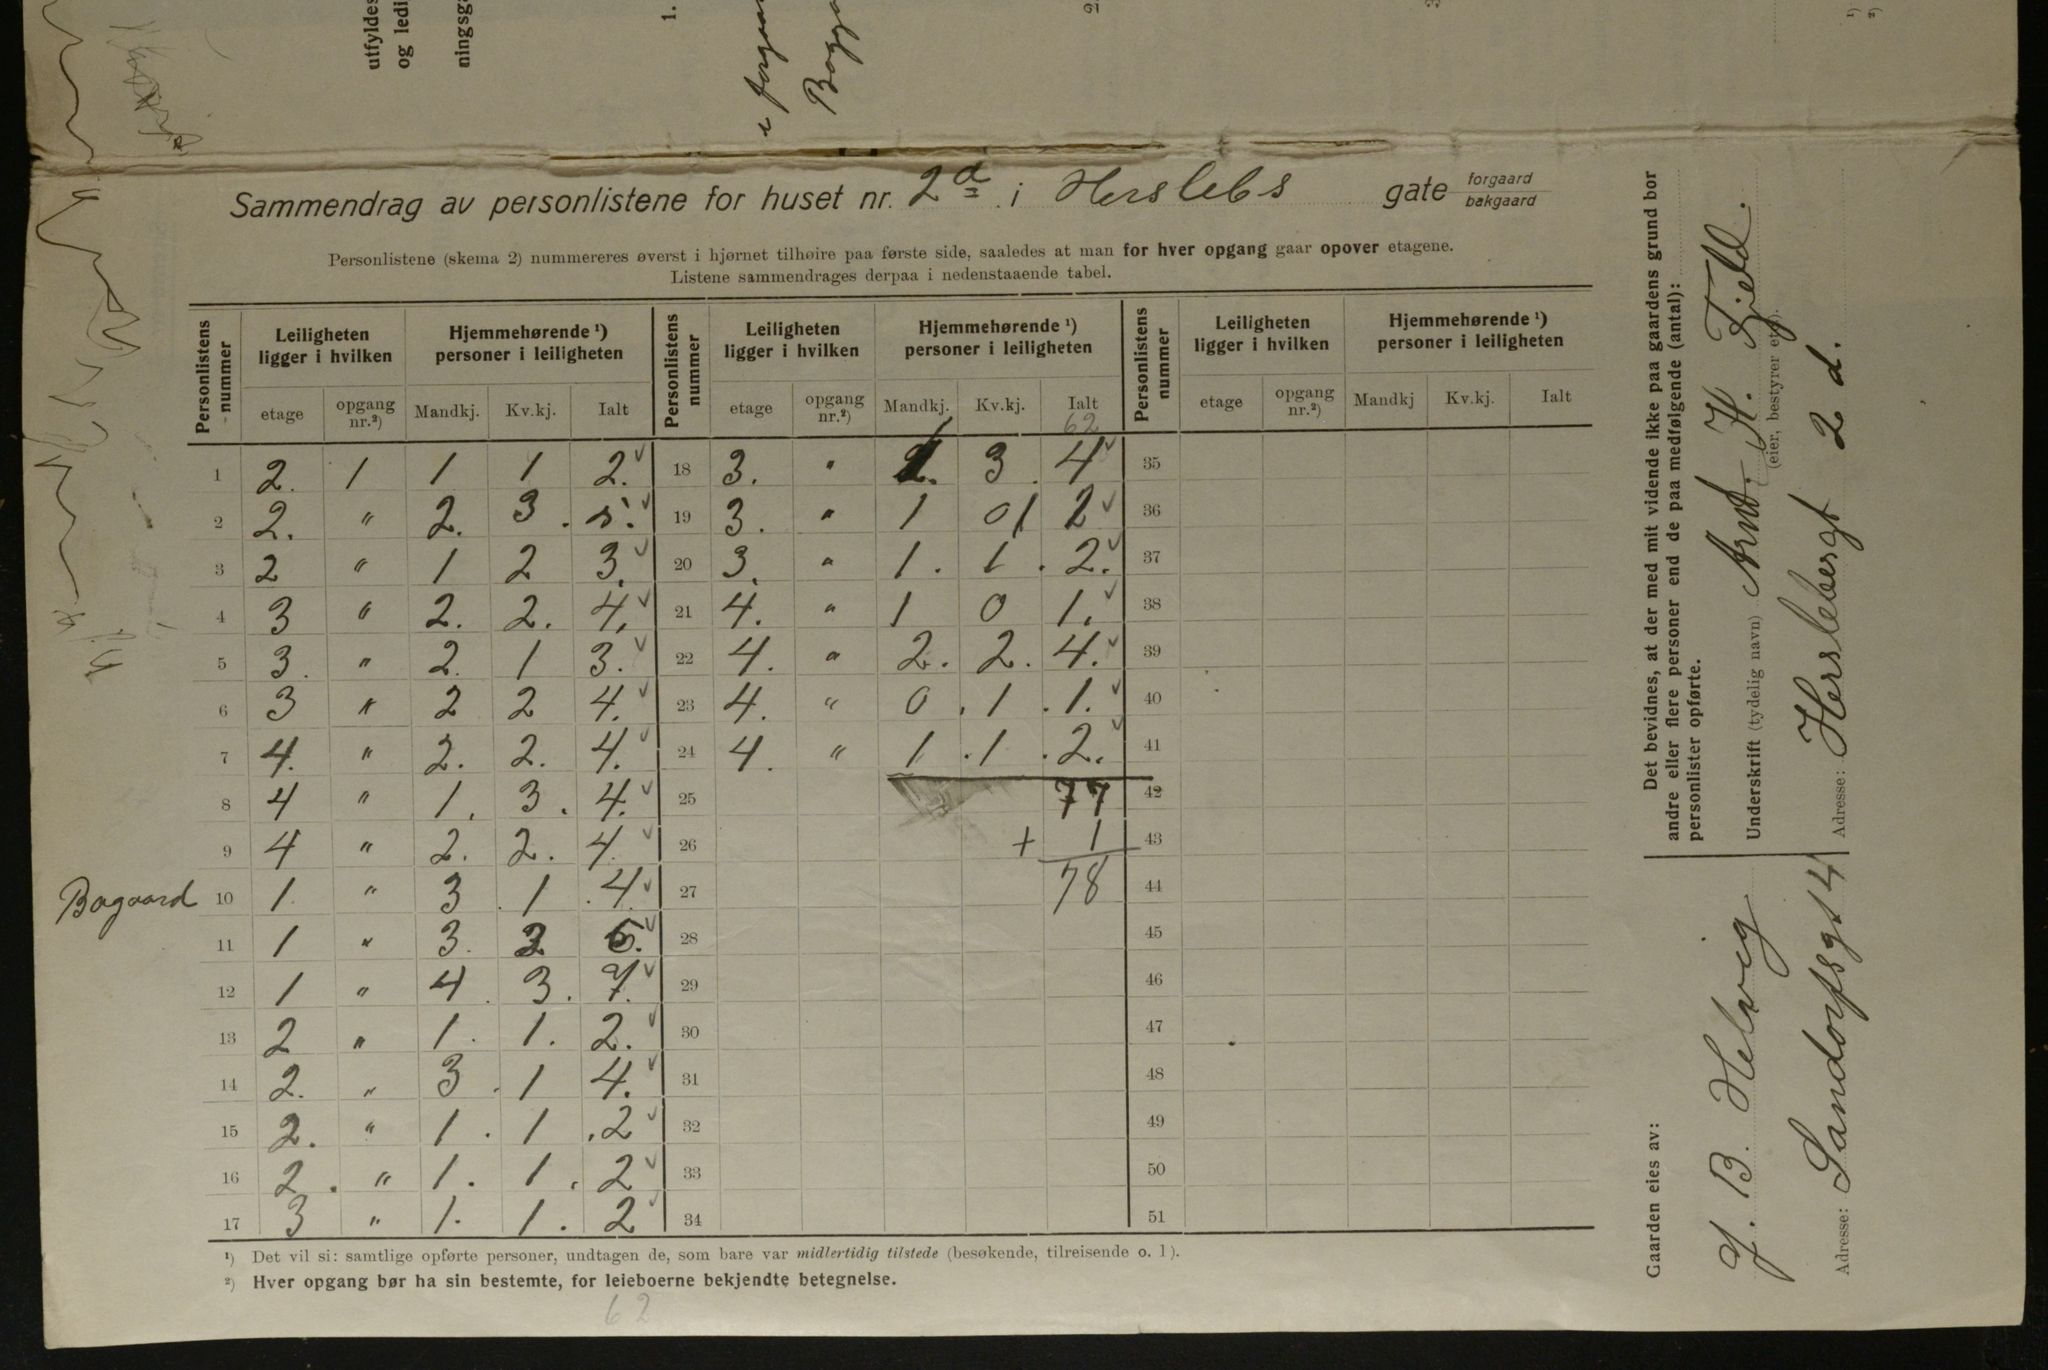 utfyldes
og ledi
ningsga
1.
i forgaar
Baggaa
2.
3
1)
2)
Sammendrag av personlistene for huset nr. 2d i Herslebs gate forgaard
bakgaard
Personlistene (skema 2) nummereres øverst i hjørnet tilhøire paa første side, saaledes at man for hver opgang gaar opover etagene.
Listene sammendrages derpaa i nedenstaaende tabel.
Personlistens nummer | Leiligheten ligger i hvilken | Hjemmehørende ¹) personer i leiligheten | Personlistens nummer | Leiligheten ligger i hvilken | Hjemmehørende ¹) personer i leiligheten | Personlistens nummer | Leiligheten ligger i hvilken | Hjemmehørende ¹) personer i leiligheten
etage | opgang nr.²) | Mandkj. | Kv.kj. | Ialt | etage | opgang nr.²) | Mandkj. | Kv.kj. | Ialt | etage | opgang nr.²) | Mandkj | Kv.kj. | Ialt
62
1 2. 1 1 1 2. 18 3. " 1. 3. 4 35
2 2. " 2. 3. 5. 19 3. " 1 01 2 36
3 2 " 1 2 3. 20 3. " 1. 1. 2. 37
4 3 " 2. 2. 4. 21 4. " 1 0 1. 38
5 3. " 2. 1 3. 22 4. " 2. 2. 4. 39
6 3 " 2 2 4. 23 4. " 0. 1. 1. 40
7 4. " 2. 2. 4. 24 4. " 1. 1. 2. 41
8 4 " 1. 3. 4. 25 77 42
9 4 " 2. 2. 4. 26 + 1 43
Bagaard 10 1. " 3. 1. 4. 27 78 44
11 1 " 3. 2 5. 28 45
12 1 " 4. 3. 7. 29 46
13 2 " 1. 1. 2. 30 47
14 2. " 3. 1 4. 31 48
15 2. " 1. 1. 2 32 49
16 2. " 1. 1. 2 33 50
17 3 " 1. 1. 2 34 51
¹) Det vil si: samtlige opførte personer, undtagen de, som bare var midlertidig tilstede (besøkende, tilreisende o. l).
²) Hver opgang bør ha sin bestemte, for leieboerne bekjendte betegnelse.
62
Det bevidnes, at der med mit vidende ikke paa gaardens grund bor
andre eller flere personer end de paa medfølgende (antal):
personlister opførte.
Underskrift (tydelig navn) Arnt. H. Fjeld.
(eier, bestyrer etc.).
Adresse: Herslebsgt 2 d.
Gaarden eies av:
J. B. Helvig
Adresse: Sandorfsgt 4